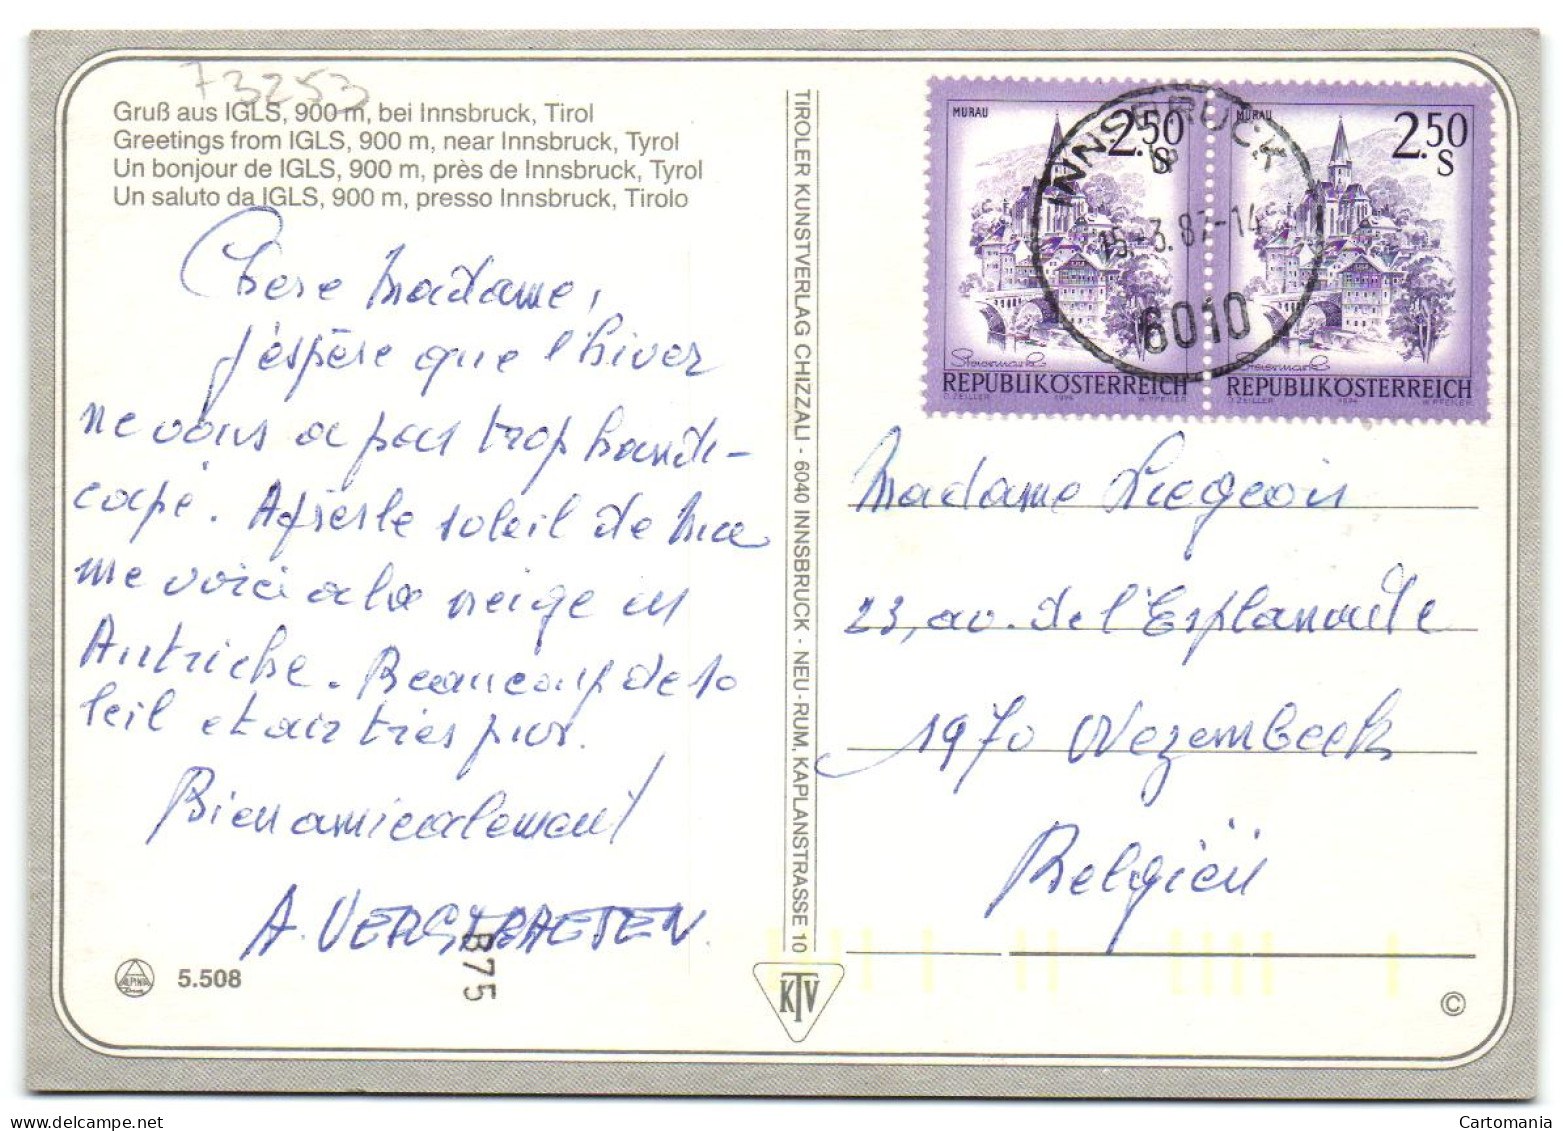 73253
Gruß aus IGLS, 900 m, bei Innsbruck, Tirol
Greetings from IGLS, 900 m, near Innsbruck, Tyrol
Un bonjour de IGLS, 900 m, près de Innsbruck, Tyrol
Un saluto da IGLS, 900 m, presso Innsbruck, Tirolo
Chere Madame,
j'éspère que l'hiver
ne vous a pas trop handi-
capé. Après le soleil de
me voici a la neige en
Autriche. Beaucoup de so
leil et air très pur.
Bien amicalement
A. VERSTRAETEN.
B75
ALPINA
5.508
TIROLER KUNSTVERLAG CHIZZALI - 6040 INNSBRUCK - NEU-RUM, KAPLANSTRASSE 10
KTV
MURAU
2.50
S
Steiermark
REPUBLIK ÖSTERREICH
O. ZEILLER 1974 W. PFEILER
MURAU
2.50
S
Steiermark
REPUBLIK ÖSTERREICH
O. ZEILLER 1974 W. PFEILER
INNSBRUCK
15.-3.87-14
6010
Madame Liegeois
23, av. de l'Esplanade
1970 Wezembeek
Belgiën
©
Cartomania